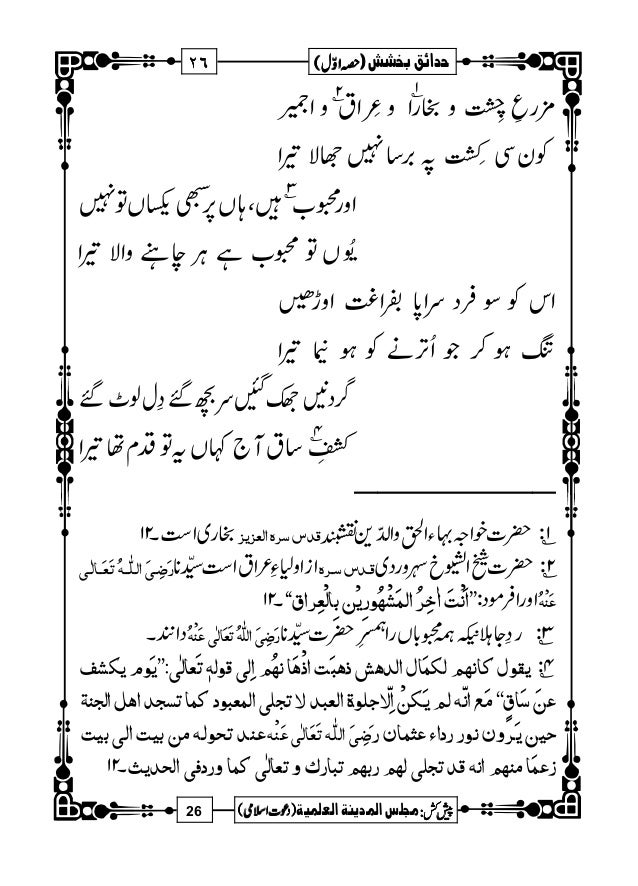 حدائق بخشش (حصہ اوّل)
۲٦
مزرعِ چِشت و بخارا۱ و عِراق۲ و اجمیر
کون سی کِشت پہ برسا نہیں جھالا تیرا
اور محبوب۳ ہیں، ہاں پر سبھی یکساں تو نہیں
یُوں تو محبوب ہے ہر چاہنے والا تیرا
اس کو سو فرد سراپا بفراغت اوڑھیں
تنگ ہو کر جو اُترنے کو ہو نیما تیرا
گردنیں جھک گئیں سر بچھ گئے دِل لوٹ گئے
کشفِ۴ ساق آج کہاں یہ تو قدم تھا تیرا
۱: حضرت خواجہ بہاء الحق والدّین نقشبند قدس سرہ العزیز بخاری است ۔۱۲
۲: حضرت شیخ الشیوخ سہروردی قدس سرہ از اولیاءِ عراق است سیّدنا رَضِیَ اللّٰہُ تَعَالٰی
عَنْہُ اورا فرمود: ”اَنْتَ اٰخِرُ الْمَشْھُوْرِیْنَ بِالْعِرَاقِ“ ۔۱۲
۳: ردِ جاہلانیکہ ہمہ محبوباں را ہمسرِ حضرت سیّدنا رَضِیَ اللّٰہُ تَعَالٰی عَنْہُ دانند۔
۴: یقول کانھم لکمال الدھش ذھبت اذھانھم اِلی قولہٖ تَعالٰی: ”یَوم یکشف
عنَ سَاقٍ“ مَع انّہ لم یَکنْ اِلّا جلوۃ العبد لا تجلی المعبود کما تسجد اھل الجنۃ
حین یَرون نور رداء عثمان رضَیَ اللّٰہ تَعَالٰی عَنْہ عند تحولہ من بیت الی بیت
زعمًا منھم انہ قد تجلی لھم ربھم تبارك و تعالٰی کما وردفی الحدیث۔۱۲
پیش کش: مجلس المدینۃ العلمیۃ (دعوتِ اسلامی)
26